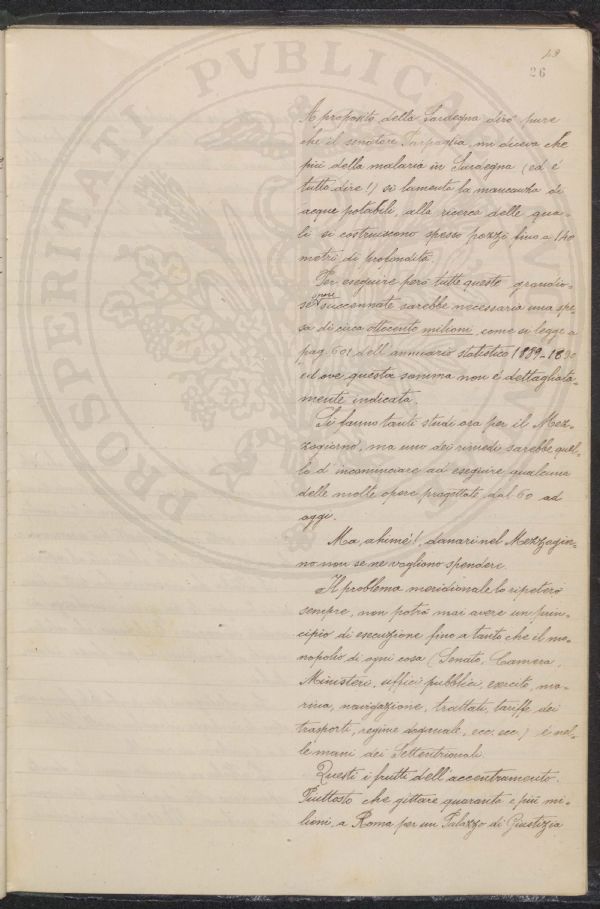 49
26
A proposito della Sardegna dirò pure
che il senatore Parpaglia, mi diceva che
più della malaria in Sardegna (ed è
tutto dire!) si lamenta la mancanza di
acque potabili, alla ricerca delle qua-
li si costruiscono spesso pozzi fino a 140
metri di profondità.
Per eseguire però tutte queste grandio-
se opere succennate sarebbe necessaria una spe-
sa di circa ottocento milioni, come si legge a
pag. 601 dell'annuario statistico 1889-1890
ed ove questa somma non è dettagliata-
mente indicata.
Si fanno tanti studi ora per il Mez-
zogiorno, ma uno dei rimedi sarebbe quel-
lo d'incominciare ad eseguire qualcuna
delle molte opere progettate dal 60 ad
oggi.
Ma, ahimè!, danari nel Mezzogior-
no non se ne vogliono spendere.
Il problema meridionale lo ripeterò
sempre, non potrà mai avere un prin-
cipio di esecuzione fino a tanto che il mo-
nopolio di ogni cosa (Senato, Camera,
Ministeri, uffici pubblici, esercito, ma-
rina, navigazione, trattati, tariffe dei
trasporti, regime doganale, ecc. ecc.) è nel-
le mani dei Settentrionali.
Questi i frutti dell'accentramento.
Piuttosto che gittare quaranta e più mi-
lioni, a Roma per un Palazzo di Giustizia
PROSPERITATI PVBLICAE